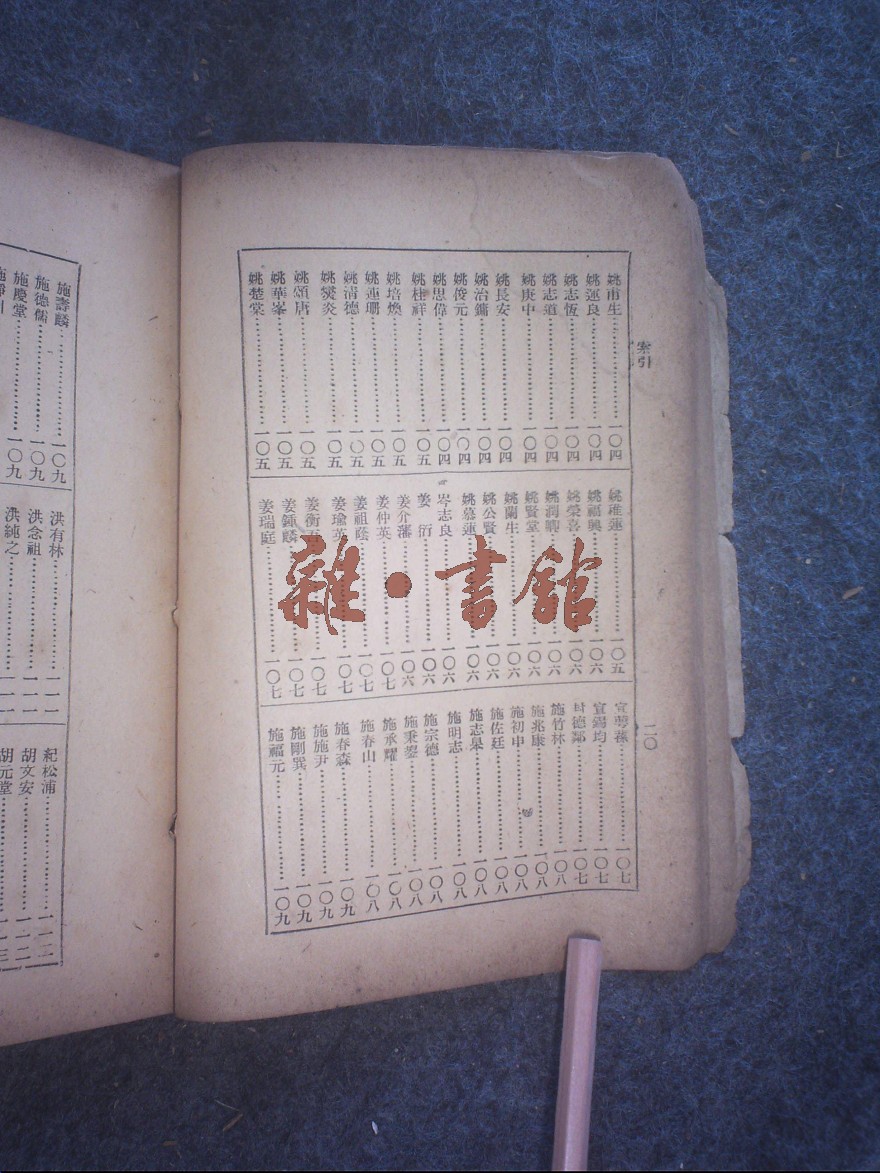 案引
二〇
姚甫生 一〇四
姚運良 一〇四
姚志恆 一〇四
姚志道 一〇四
姚庚中 一〇四
姚長安 一〇四
姚治鏞 一〇四
姚俊元 一〇四
姚思偉 一〇四
姚桂祥 一〇五
姚培煥 一〇五
姚連珊 一〇五
姚清德 一〇五
姚燮炎 一〇五
姚頌唐 一〇五
姚華峯 一〇五
姚楚棠 一〇五
姚維蓮 一〇五
姚福興 一〇六
姚榮喜 一〇六
姚潤 一〇六
姚賢堂 一〇六
姚蘭生 一〇六
姚公賢 一〇六
姚慕蓮 一〇六
岑志良 一〇六
姜衍 一〇六
姜介藩 一〇六
姜仲英 一〇七
姜祖蔭 一〇七
姜瑜英 一〇七
姜衡 一〇七
姜鍾麟 一〇七
姜瑞庭 一〇七
宣 一〇七
宣錫均 一〇七
封德鄰 一〇七
施竹林 一〇八
施兆康 一〇八
施初中 一〇八
施佐廷 一〇八
施志皋 一〇八
施明志 一〇八
施宗德 一〇八
施秉鋆 一〇八
施承耀 一〇八
施春山 一〇八
施春森 一〇九
施施尹 一〇九
施剛巽 一〇九
施福元 一〇九
施壽麟 一〇九
施德儒 一〇九
施慶堂 一〇九
洪有林 一一一
洪念祖 一一一
洪純之 一一一
紀松浦 一一二
胡文安 一一二
胡元堂 一一三
雜·書館